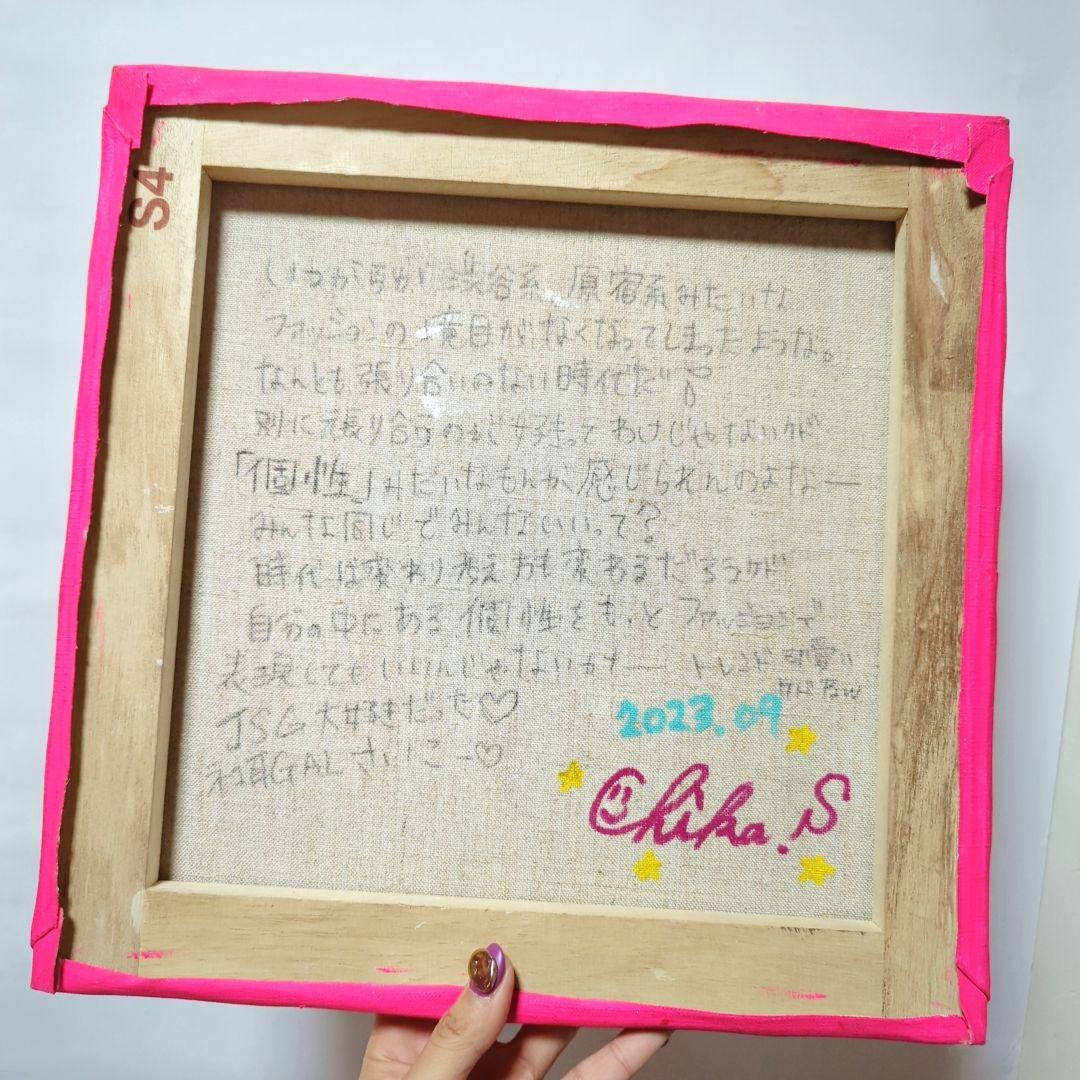 S4
いつからか渋谷系、原宿系みたいな
ファッションの境目がなくなってしまったような。
なんとも張り合いのない時代だ
別に張り合うのが好きってわけじゃないケド
「個性」みたいなもんが感じられんのよなー
みんな同じでみんないいって？
時代は変わり考えおも変わるだろうケド
自分の中にある個性をもっとファッションで
表現してもいいんじゃないかなー トレンド可愛い
ケド
JSG大好きだった♡
ネコ耳GALさいこー♡
2023.09
Chika.S